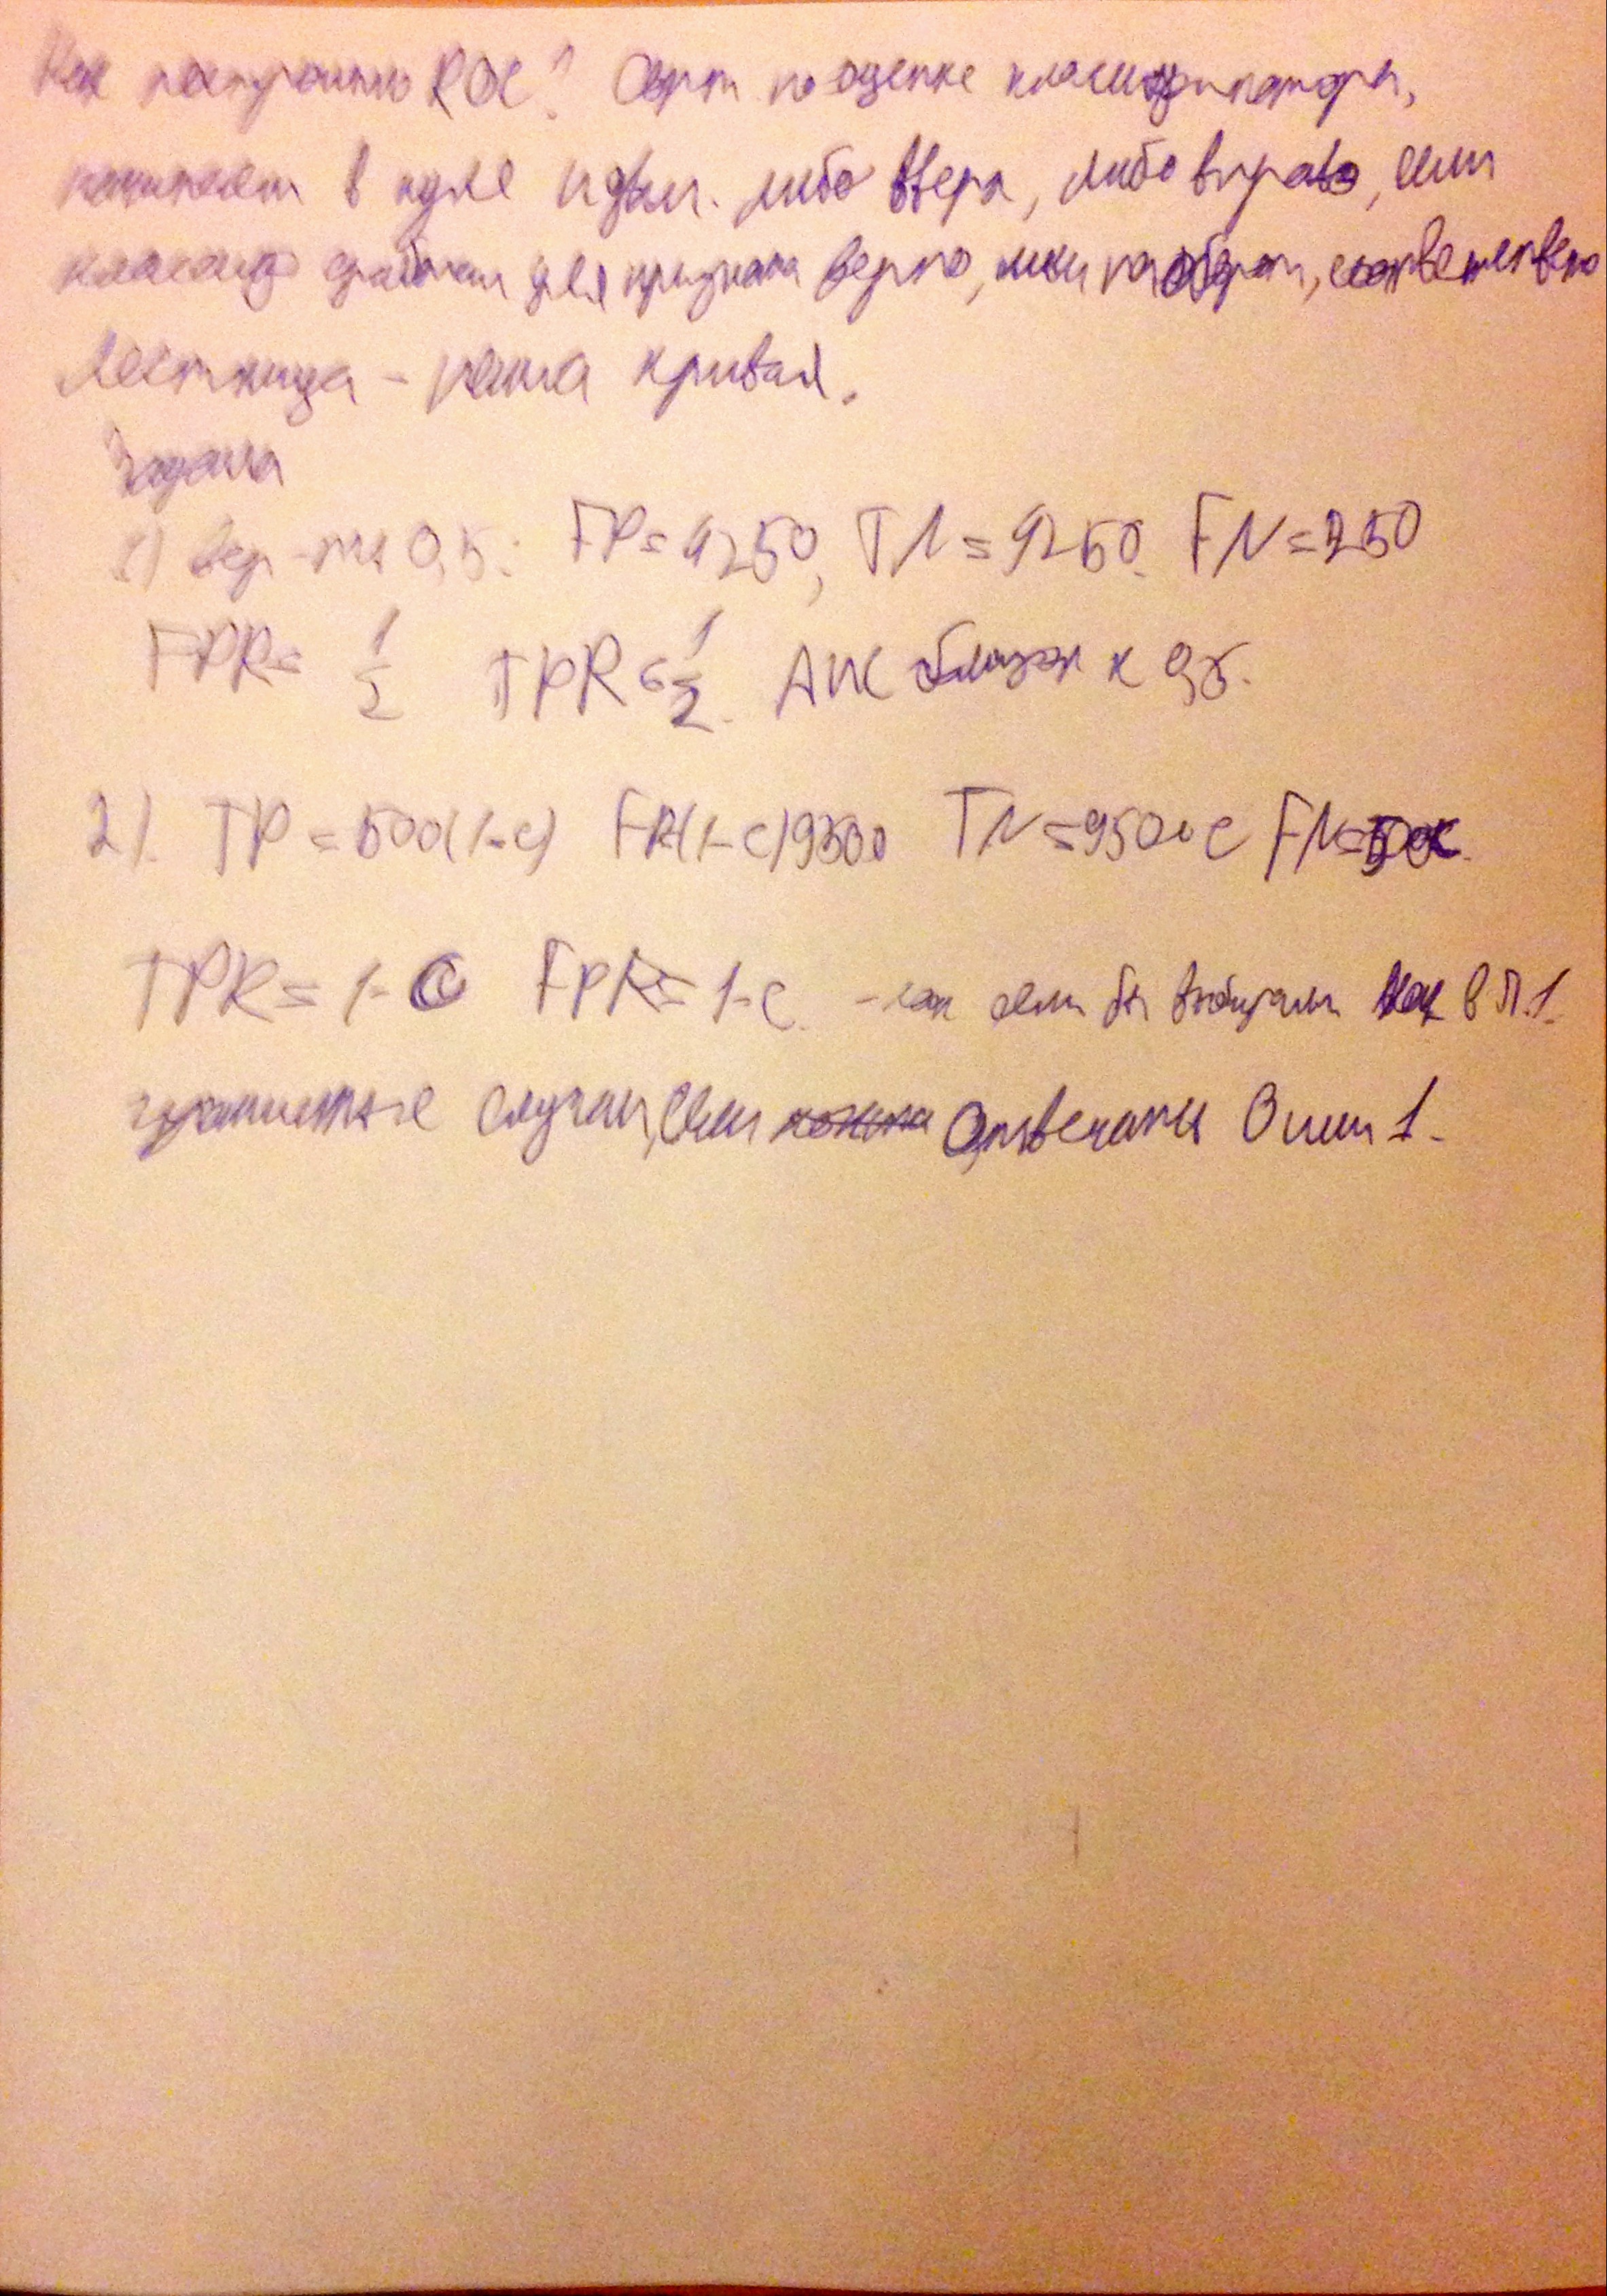 Как построить ROC? Сорт. по оценке классификатора,
начинаем в нуле и двиг. либо вверх, либо вправо, если
классиф сработал для признака верно, или наоборот, соответственно
Лестница - наша кривая.
Задача
1) вер-ть 0,5: FP=4250, TN=9250. FN=250
FPR= 1/2 TPR= 1/2. AUC близок к 0,5.
2). TP=500(1-c) FP=(1-c)9500 TN=9500c FN=500c.
TPR=1-c FPR=1-c. - как если бы выбирали как в п.1.
граничные случаи, если отвечать 0 или 1.